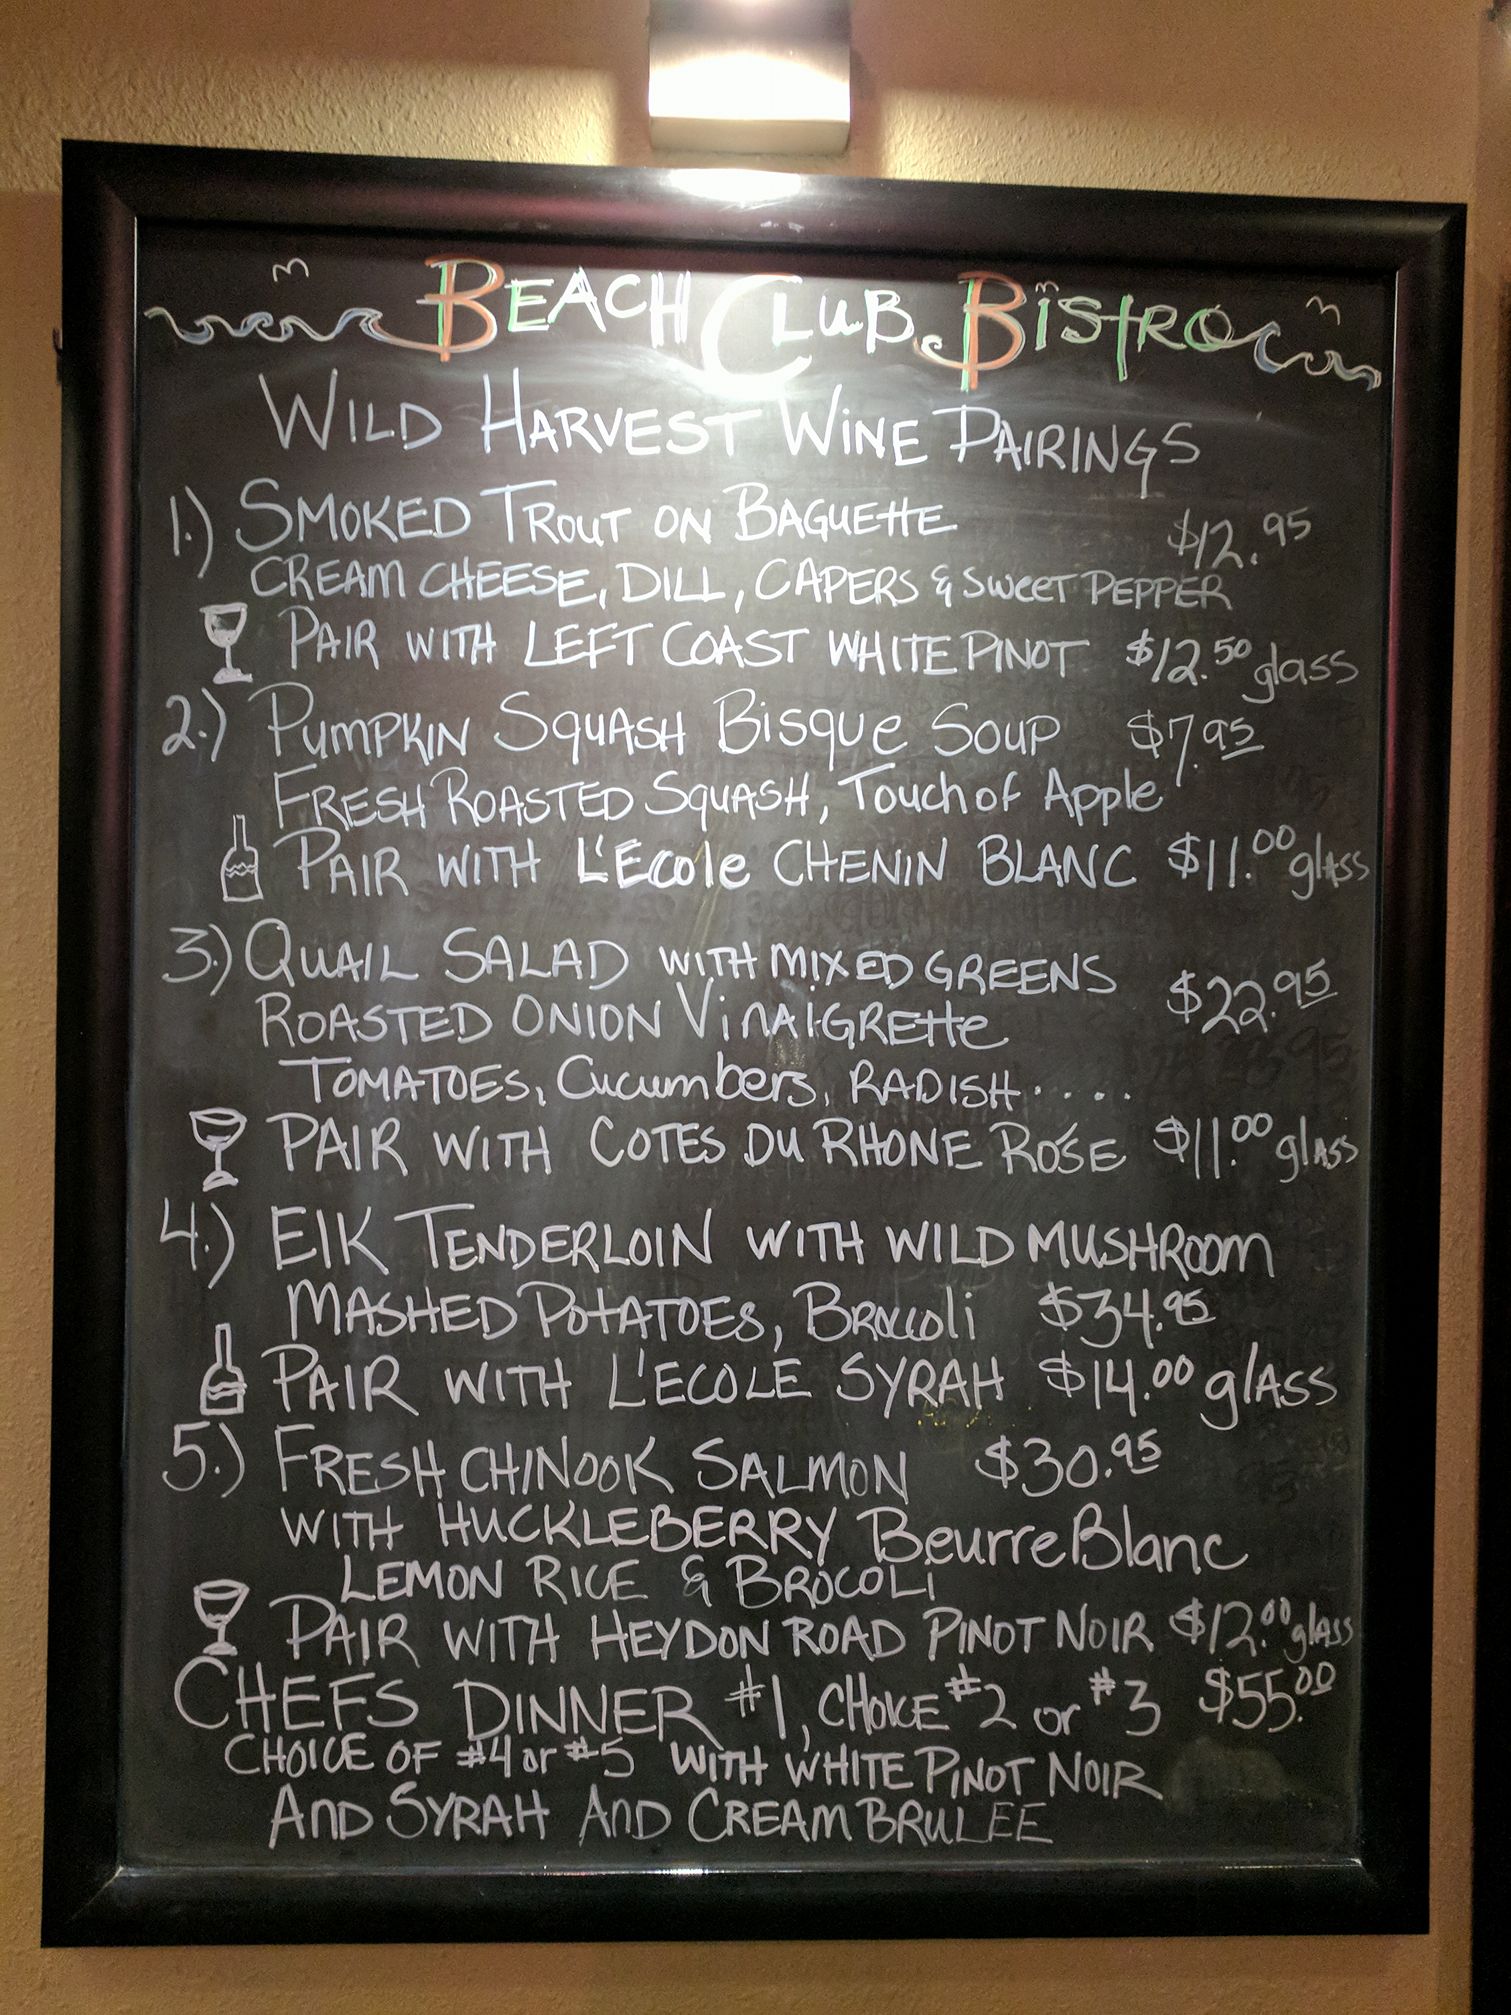 BEACH CLUB BISTRO
WILD HARVEST WINE PAIRINGS
1.) SMOKED TROUT ON BAGUETTE $12.95
CREAM CHEESE, DILL, CAPERS & SWEET PEPPER
PAIR WITH LEFT COAST WHITE PINOT $12.50 glass
2.) PUMPKIN SQUASH BISQUE SOUP $7.95
FRESH ROASTED SQUASH, Touch of Apple
PAIR WITH L'Ecole CHENIN BLANC $11.00 glass
3.) QUAIL SALAD WITH MIXED GREENS $22.95
ROASTED ONION VINAIGRETTE
TOMATOES, Cucumbers, RADISH.....
PAIR WITH COTES DU RHONE ROSÉ $11.00 glass
4.) ElK TENDERLOIN WITH WILD MUSHROOM
MASHED POTATOES, Broccoli $34.95
PAIR WITH L'ECOLE SYRAH $14.00 glass
5.) FRESH CHINOOK SALMON $30.95
WITH HUCKLEBERRY Beurre Blanc
LEMON RICE & BROCOLI
PAIR WITH HEYDON ROAD PINOT NOIR $12.00 glass
CHEFS DINNER #1, CHOICE #2 or #3 $55.00
CHOICE OF #4 or #5 WITH WHITE PINOT NOIR
AND SYRAH AND CREAM BRULEE